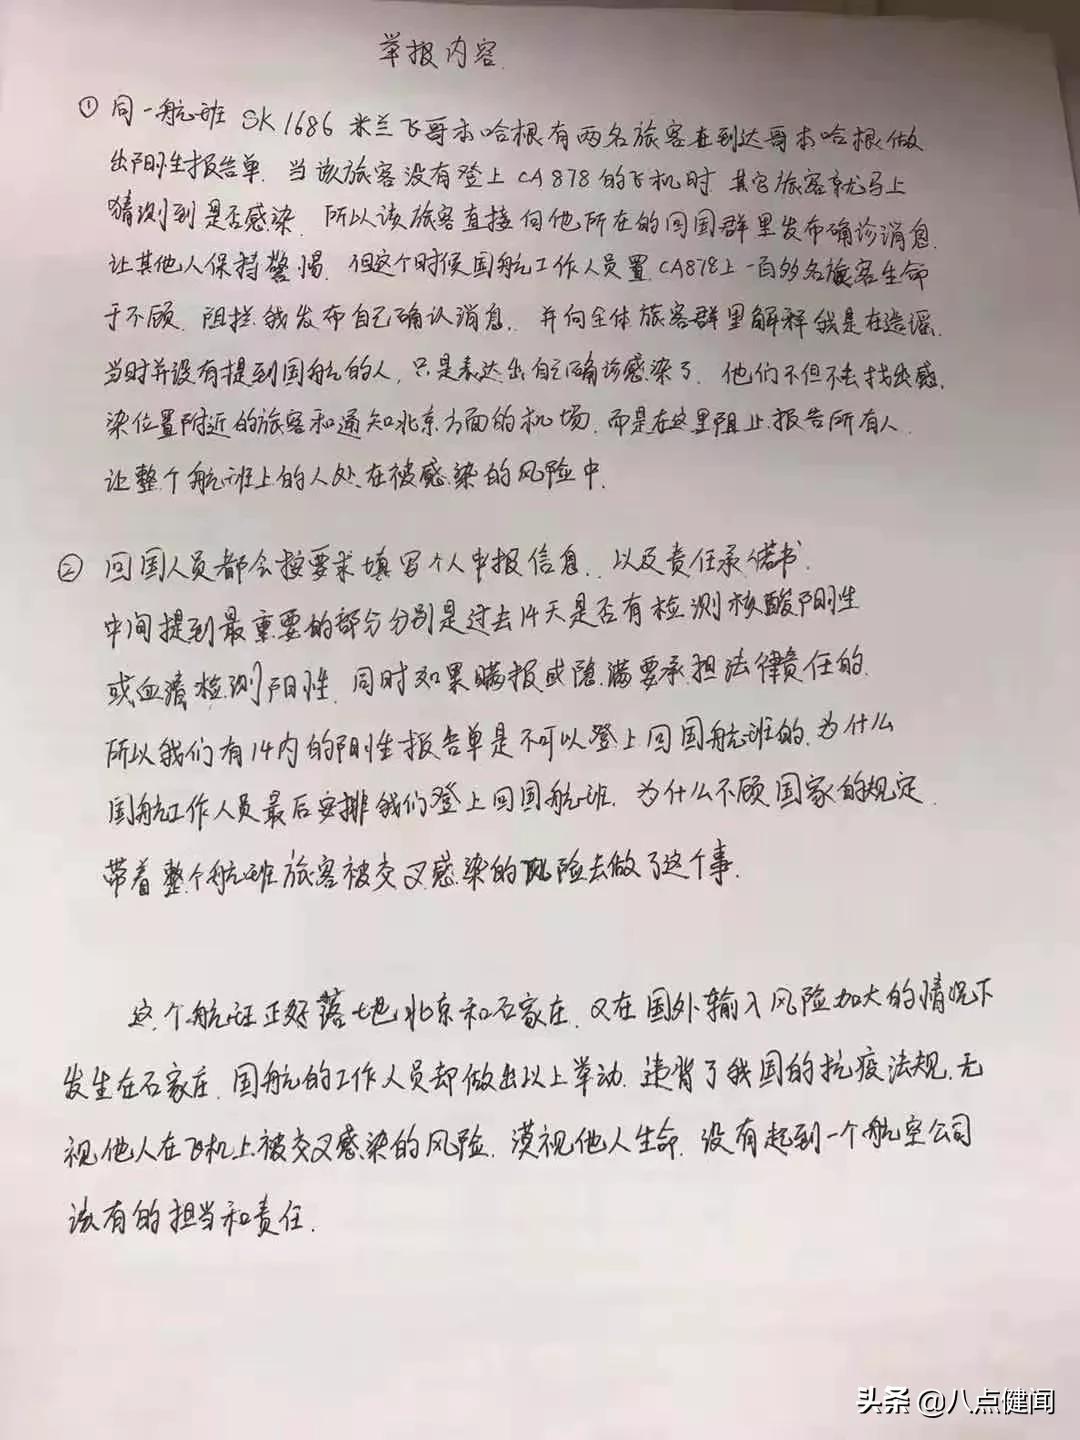 举报内容.
① 同一航班 SK1686 米兰飞哥本哈根有两名旅客直到达哥本哈根做
出阳性报告单. 当该旅客没有登上 CA878的飞机时 其它旅客就马上
猜测到是否感染. 所以该旅客直接向他所在的回国群里发布确诊消息.
让其他人保持警惕. 但这个时候国航工作人员置 CA878上一百多名旅客生命
于不顾. 阻拦我发布自己确认消息. 并向全体旅客群里解释我是在造谣.
当时并没有提到国航的人, 只是表达出自己确诊感染了. 他们不但不去找出感.
染位置附近的旅客和通知北京方面的机场. 而是在这里阻止报告所有人.
让整个航班上的人处在被感染的风险中.
② 回国人员都会按要求填写个人申报信息. 以及责任承偌书.
中间提到最重要的部分分别是过去14天是否有检测核酸阳性
或血清检测阳性. 同时如果瞒报或隐满要承担法律责任的.
所以我们有14内的阳性报告单是不可以登上回国航班的. 为什么
国航工作人员最后安排我们登上回国航班. 为什么不顾国家的规定.
带着整个航班旅客被交叉感染的风险去做了这个事.
这个航班正好落地北京和石家庄. 又在国外输入风险加大的情况下
发生在石家庄. 国航的工作人员却做出以上举动. 违背了我国的抗疫法规. 无
视他人在飞机上被交叉感染的风险. 漠视他人生命. 没有起到一个航空公司
该有的担当和责任.
头条 @八点健闻